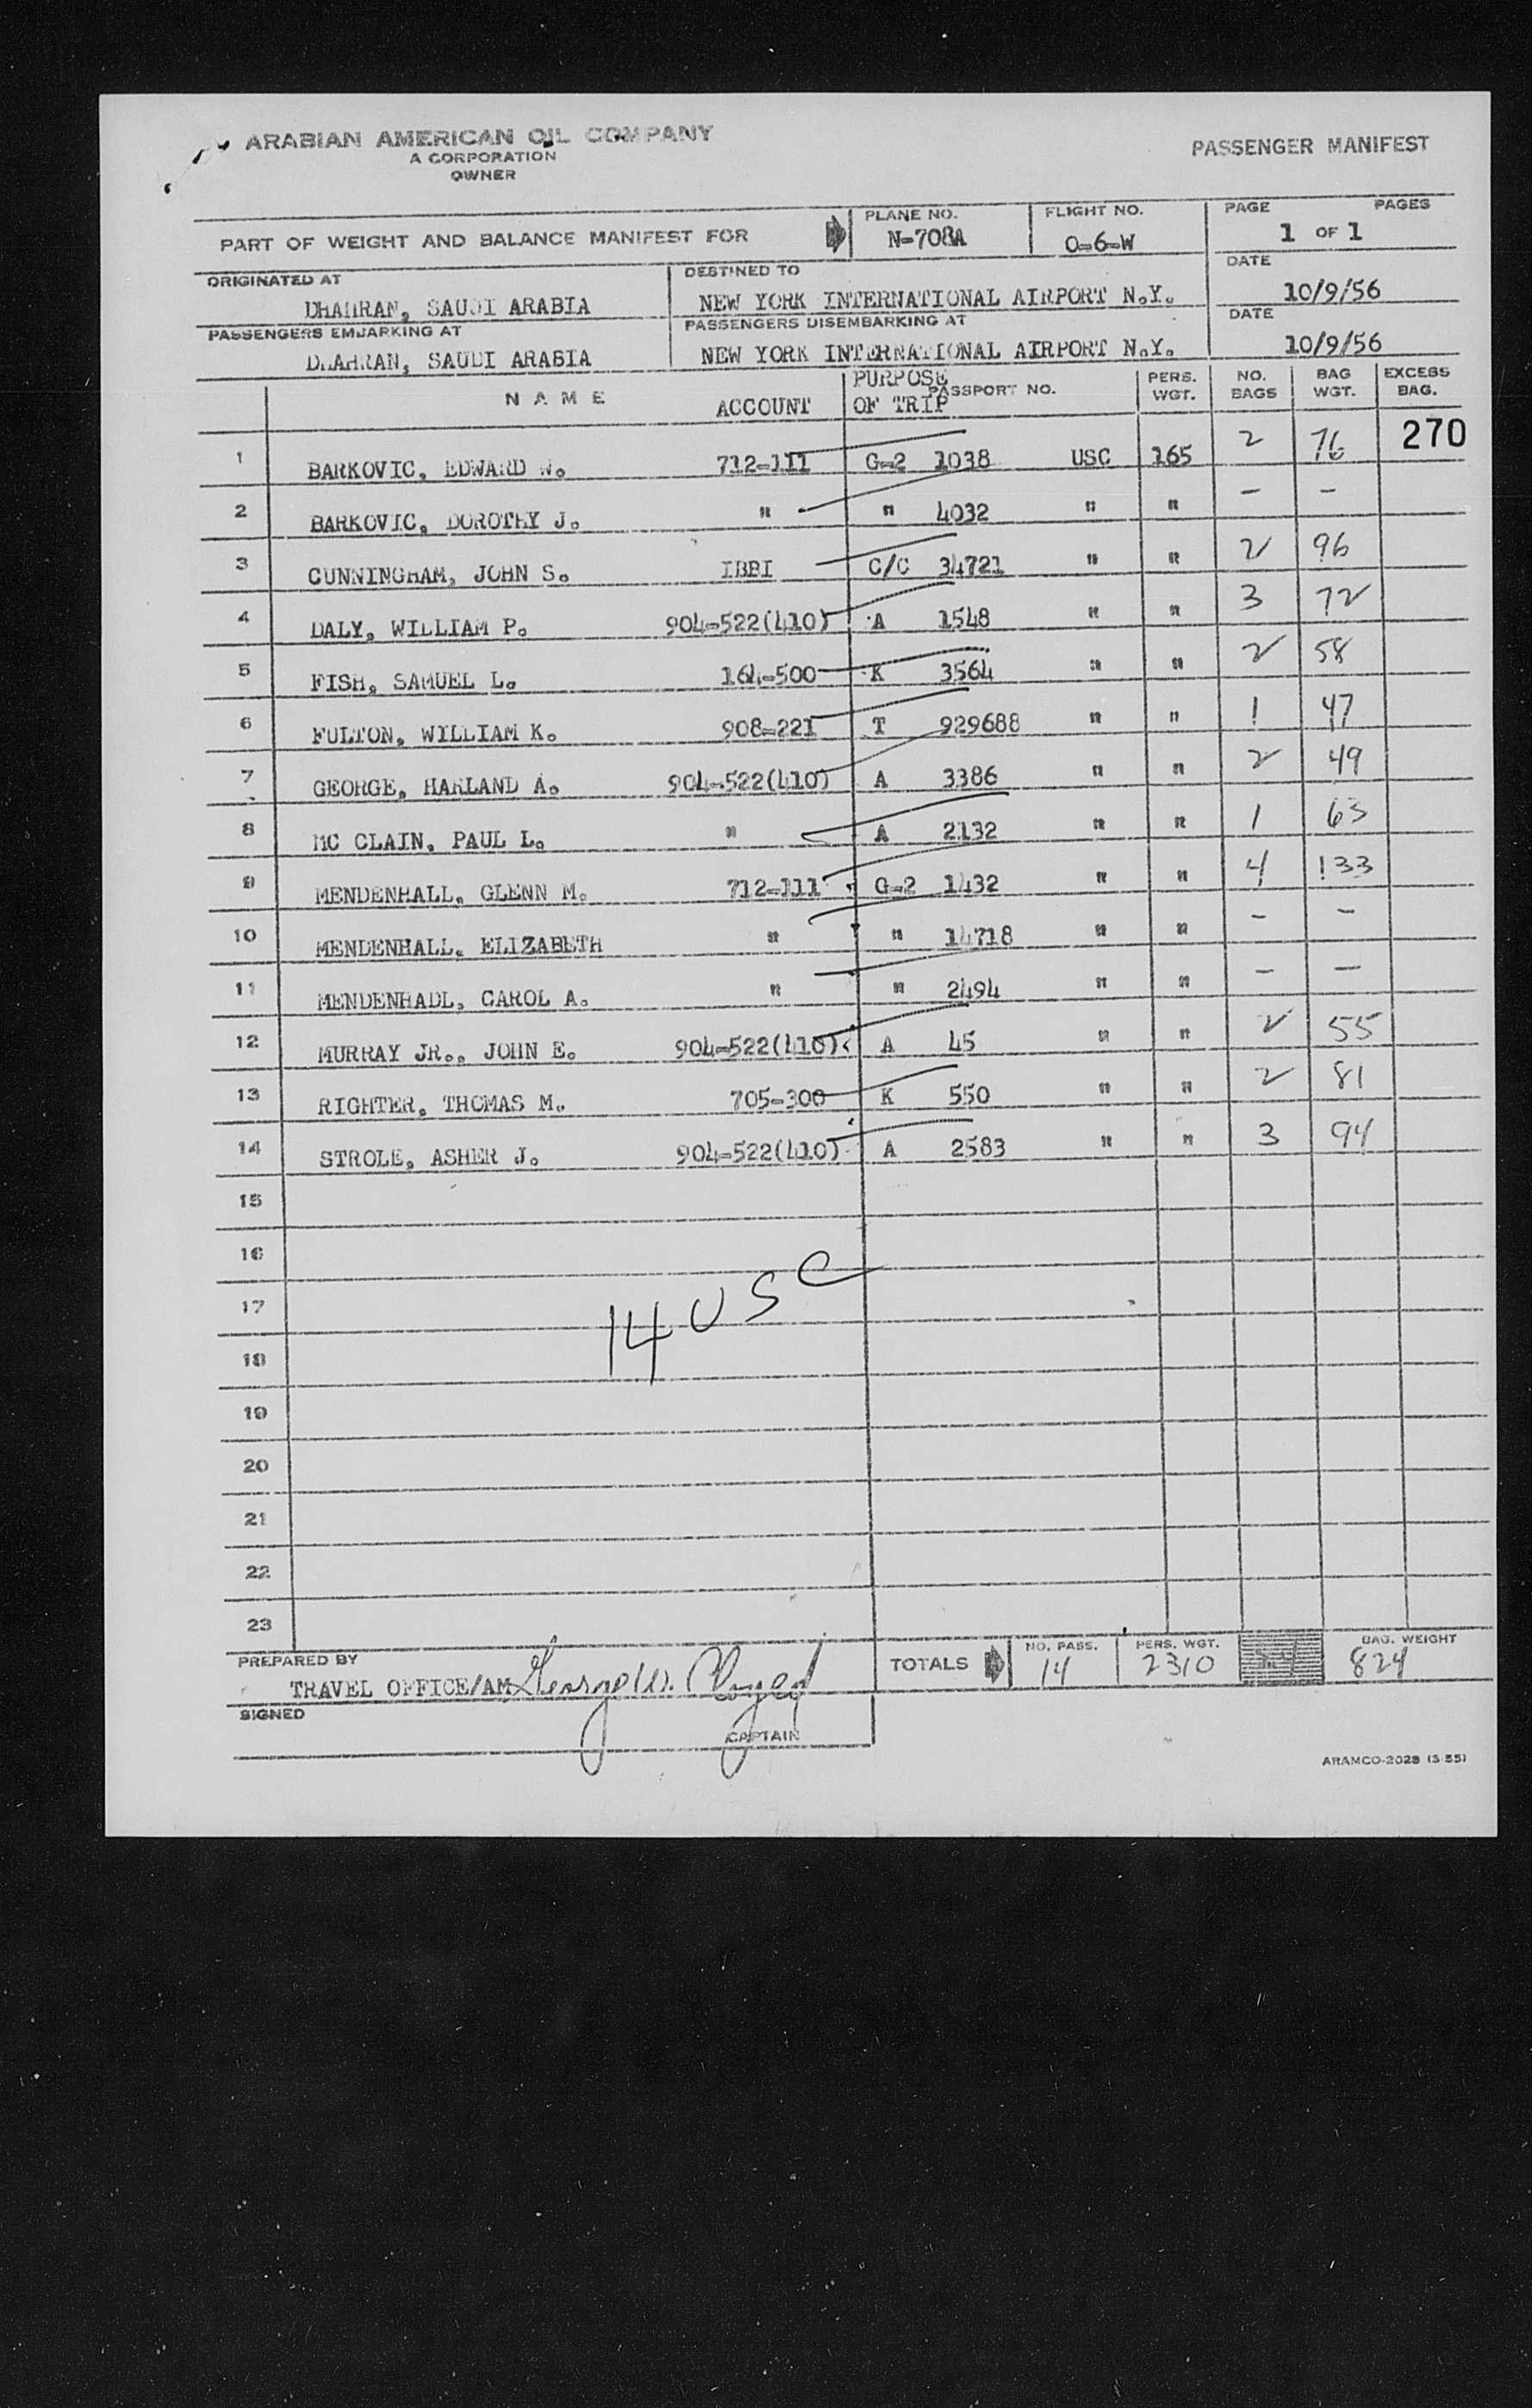 ARABIAN AMERICAN OIL COMPANY
A CORPORATION
OWNER
PASSENGER MANIFEST
PART OF WEIGHT AND BALANCE MANIFEST FOR
PLANE NO.
N-708A
FLIGHT NO.
O-6-W
PAGE PAGES
1 OF 1
ORIGINATED AT
DHAHRAN, SAUDI ARABIA
DESTINED TO
NEW YORK INTERNATIONAL AIRPORT N.Y.
DATE
10/9/56
PASSENGERS EMBARKING AT
DHAHRAN, SAUDI ARABIA
PASSENGERS DISEMBARKING AT
NEW YORK INTERNATIONAL AIRPORT N.Y.
DATE
10/9/56
NAME ACCOUNT PURPOSE OF TRIP PASSPORT NO. PERS. WGT. NO. BAGS BAG WGT. EXCESS BAG.
270
1 BARKOVIC, EDWARD W. 712-111 G-2 1038 USC 165 2 76
2 BARKOVIC, DOROTHY J. " " 4032 " " - -
3 CUNNINGHAM, JOHN S. IBPI C/C 34721 " " 2 96
4 DALY, WILLIAM P. 904-522(410) A 1548 " " 3 72
5 FISH, SAMUEL L. 164-500 K 3564 " " 2 58
6 FULTON, WILLIAM K. 908-221 T 929688 " " 1 47
7 GEORGE, HARLAND A. 904-522(410) A 3386 " " 2 49
8 MC CLAIN, PAUL L. " A 2132 " " 1 63
9 MENDENHALL, GLENN M. 712-111 G-2 1432 " " 4 133
10 MENDENHALL, ELIZABETH " " 14718 " " - -
11 MENDENHADL, CAROL A. " " 2494 " " - -
12 MURRAY JR., JOHN E. 904-522(410) A 45 " " 2 55
13 RIGHTER, THOMAS M. 705-300 K 550 " " 2 81
14 STROLE, ASHER J. 904-522(410) A 2583 " " 3 94
15
16
17
14 USC
18
19
20
21
22
23
PREPARED BY
TRAVEL OFFICE/AM George W.
TOTALS
NO. PASS.
14
PERS. WGT.
2310
BAG. WEIGHT
824
SIGNED
CAPTAIN
ARAMCO-2028 (3-55)